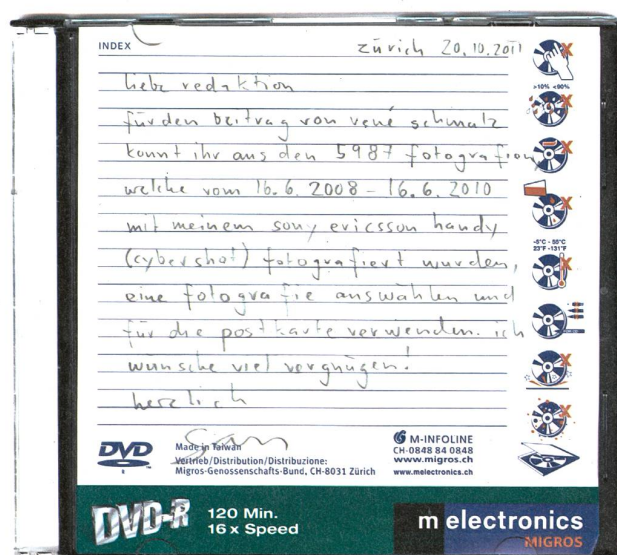 INDEX
zürich 20.10.2011
liebe redaktion
für den beitrag von rené schmalz
könnt ihr aus den 5987 fotografien,
welche vom 16.6.2008 – 16.6.2010
mit meinem sony ericsson handy
(cybershot) fotografiert wurden,
eine fotografie auswählen und
für die postkarte verwenden. ich
wünsche viel vergnügen!
herzlich
>10% <90%
-5°C - 55°C
23°F - 131°F
DVD
R
Made in Taiwan
Vertrieb/Distribution/Distribuzione:
Migros-Genossenschafts-Bund, CH-8031 Zürich
M-INFOLINE
CH-0848 84 0848
www.migros.ch
www.melectronics.ch
DVD-R
120 Min.
16 x Speed
m electronics
MIGROS